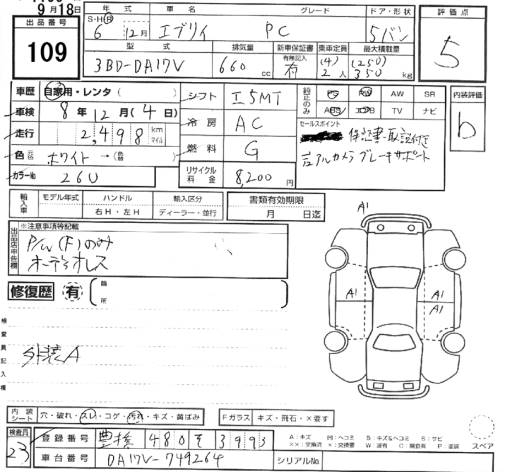 9月18日
出品番号
109
年式 車名 グレード ドア・形状
S・H・R 6 12月 エブリイ PC 5 バン
型式 排気量 新車保証書 乗車定員 最大積載量
有無記入 (4) (250)
3BD-DA17V 660 cc 有 2人 350 kg
評価点
5
車歴 自家用・レンタ
車検 8年12月(4日)
走行 2,498 km マイル
色 元色 ホワイト →
カラーNo 26U
シフト I5MT
冷房 AC
燃料 G
リサイクル料金 8,200円
PS PW AW SR
ABS エアB TV ナビ
セールスポイント
保証書 取説付き
アルカメラ ブレーキサポート
内装評価
b
輸入車 モデル年式 ハンドル 輸入区分
年 右H・左H ディーラー・並行
書類有効期限
月 日迄
出品店申告欄
※注意事項等記載
P/W(F)のみ
オーディオレス
修復歴 有 箇所
検査員記入欄
外装A
A1
A1
A1
A1
A1
内装シート 穴・破れ・スレ・コゲ・汚れ・キズ・黄ばみ
Fガラス キズ・飛石・X要す
検査員
23
登録番号 豊橋 480 を 3993
車台番号 DA17V-749264
シリアルNo
スペア